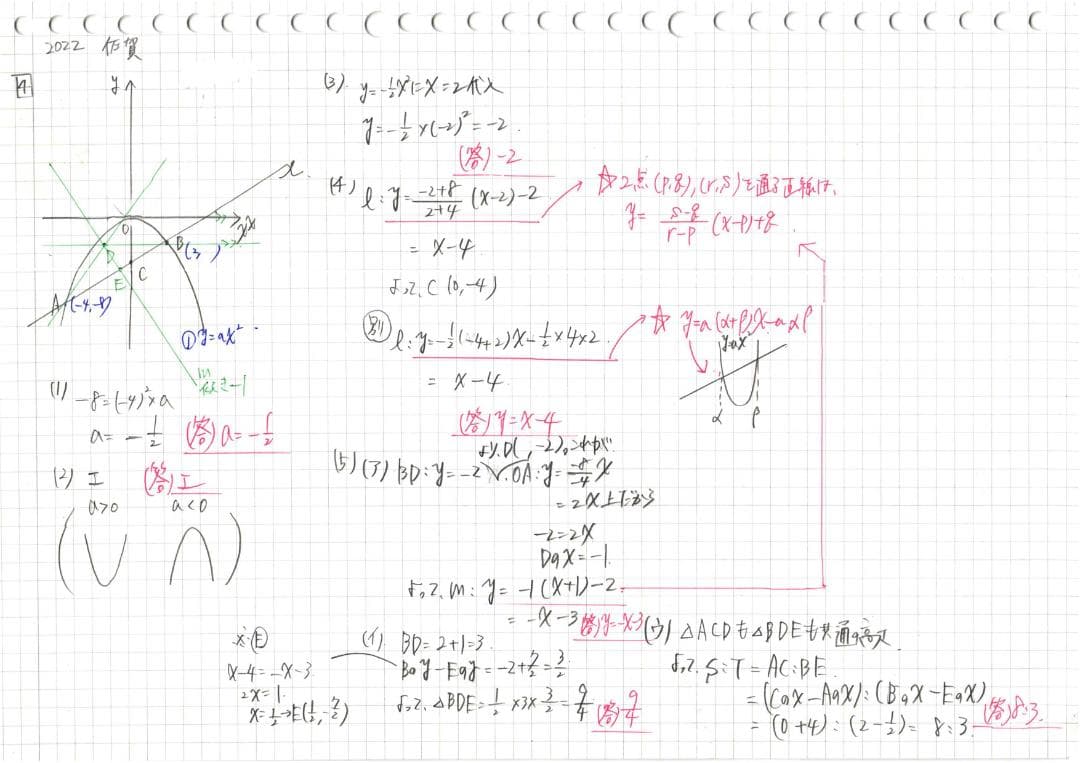 2022 佐賀
4
y
x
l
O
D
E
B(2, )
C
A(-4,-8)
①y=ax²
m
傾き-1
(1) -8=(-4)²×a
a=-1/2 (答) a=-1/2
(2) エ (答)エ
a>0 a<0
(3). y=-1/2x²にx=2代入
y=-1/2×(-2)²=-2.
(答) -2
(4) l:y=(-2+8)/(2+4)(x-2)-2
=x-4
よって、C(0,-4)
☆2点(p,q),(r,s)を通る直線は、
y=(s-q)/(r-p)(x-p)+q.
別 l:y=-1/2(-4+2)x-1/2×4×2
=x-4
☆ y=a(α+β)x-aαβ
y=ax²
α β
(答) y=x-4
より、D( , -2)。これが
(5)(ア) BD:y=-2 OA:y=-8/-4x
=2x上だから
-2=2x
Dのx=-1.
よって、m:y=-1(x+1)-2
=-x-3 (答) y=-x-3
交E
x-4=-x-3
2x=1
x=1/2→E(1/2,-7/2)
(イ). BD=2+1=3.
Bのy-Eのy=-2+7/2=3/2
よって、△BDE=1/2×3×3/2=9/4 (答) 9/4
(ウ) △ACDも△BDEも共通の高さ
よって、S:T=AC:BE
=(Cのx-Aのx):(Bのx-Eのx)
=(0+4):(2-1/2)=8:3 (答) 8:3.